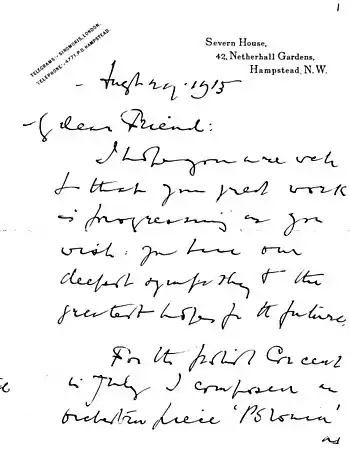 1
TELEGRAMS:- SINGWORTH, LONDON.
TELEPHONE:- 4771. P.O. HAMPSTEAD.
Severn House,
42, Netherhall Gardens,
Hampstead, N.W.
29. 1915
dear Friend:
I hope you are well
& that your great work
is progressing as you
wish: you have our
deepest sympathy & the
greatest hopes for the future.
For the Polish Concert
in July I composed an
orchestral piece 'Polonia'